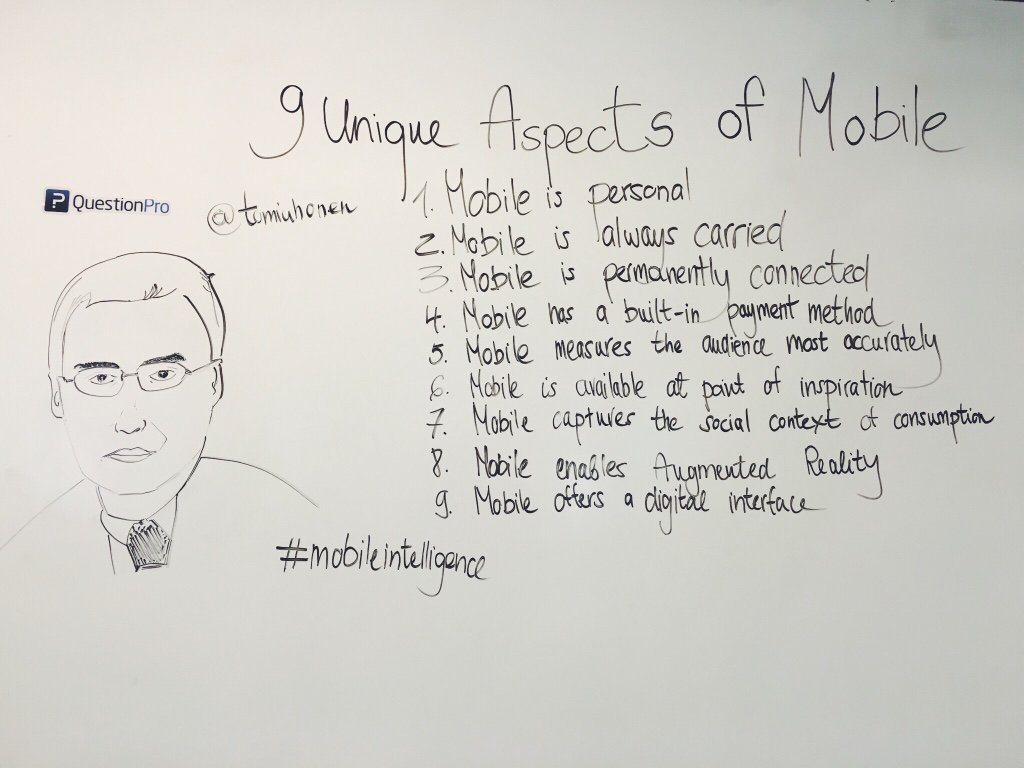 9 Unique Aspects of Mobile
QuestionPro
@tomiuhonen
1. Mobile is personal
2. Mobile is always carried
3. Mobile is permanently connected
4. Mobile has a built-in payment method
5. Mobile measures the audience most accurately
6. Mobile is available at point of inspiration
7. Mobile captures the social context of consumption
8. Mobile enables Augmented Reality
9. Mobile offers a digital interface
#mobileintelligence